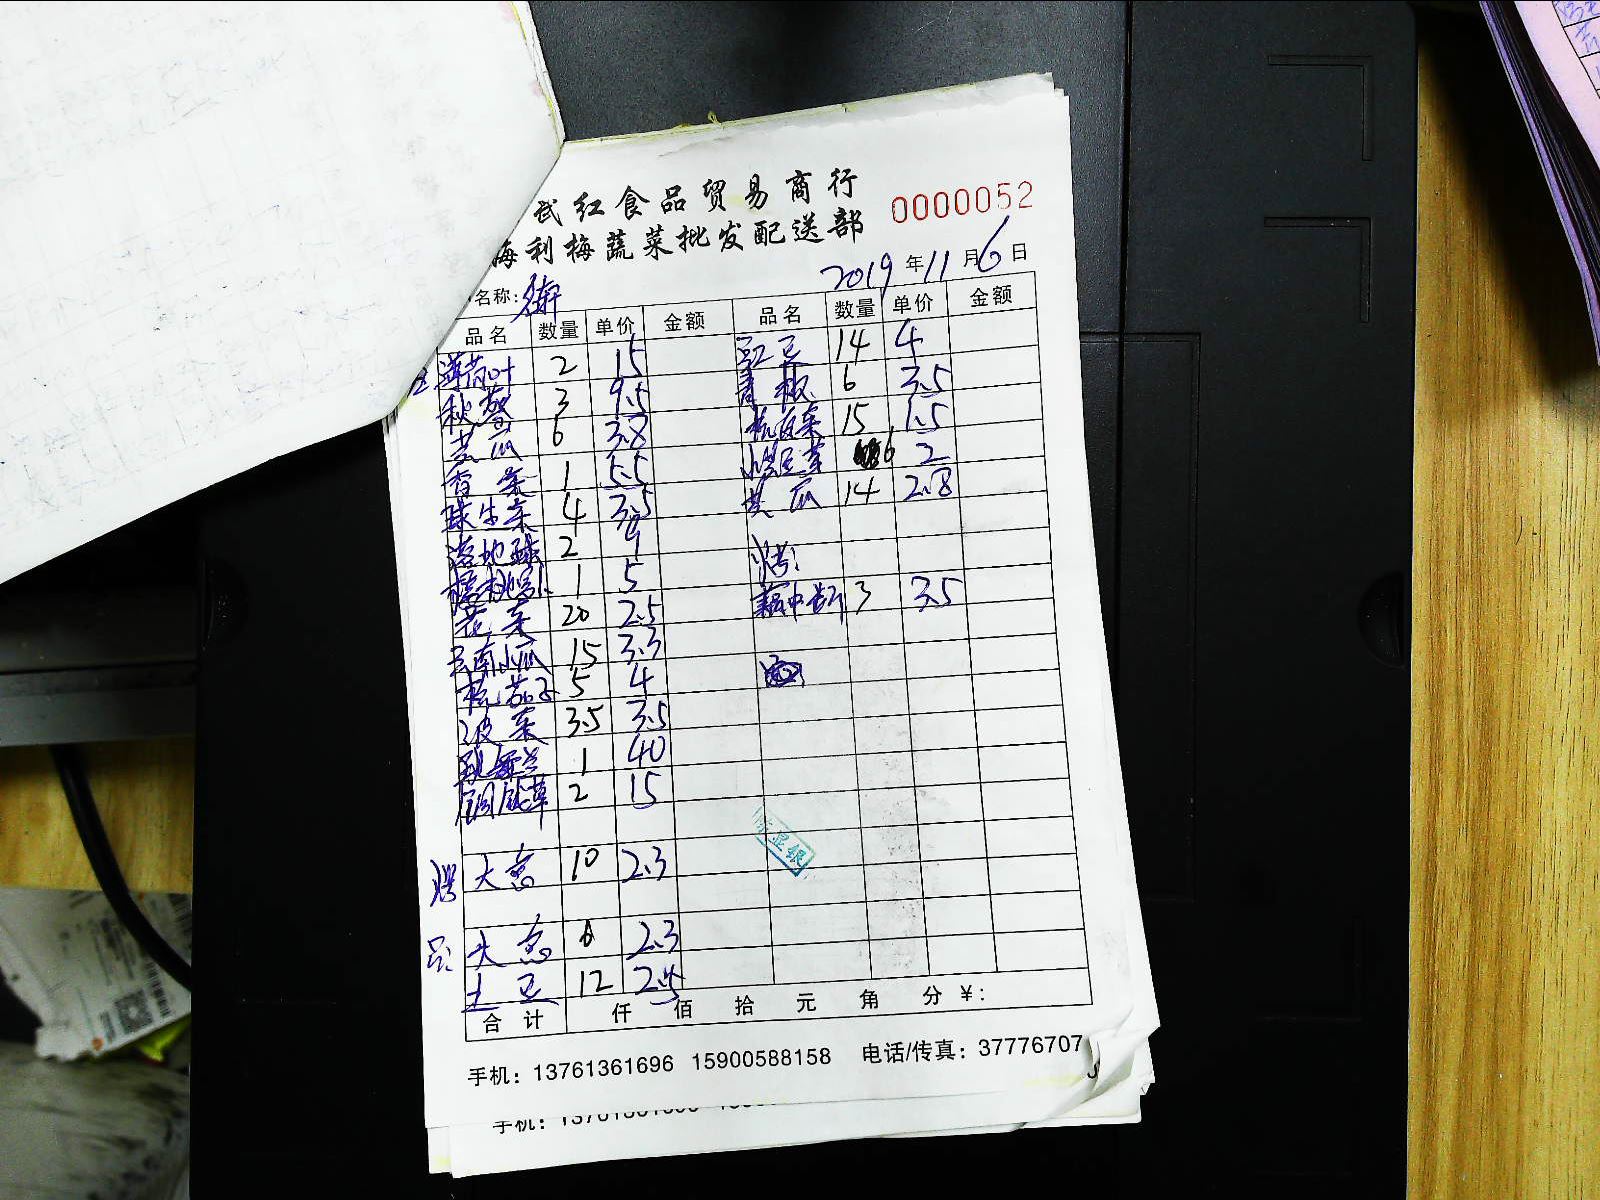 武红食品贸易商行
海利梅蔬菜批发配送部
0000052
2019年11月6日
名称:
品名 数量 单价 金额 品名 数量 单价 金额
薄荷叶 2 15 红豆 14 4
秋葵 3 9.5 青椒 6 3.5
黄瓜 6 3.8 杭白菜 15 1.5
香菜 1 5.5 6 2
球生菜 4 3.5 黄瓜 14 2.8
2 9
1 5 烤:
花菜 20 2.5 藕中断 3 3.5
云南小瓜 15 3.3
杭茄子 5 4
波菜 3.5 3.5
1 40
铜钱草 2 15
显银
大葱 10 2.3
大葱 6 2.3
土豆 12 2.5
合计 仟 佰 拾 元 角 分 ¥:
手机: 13761361696 15900588158 电话/传真: 37776707
手机: